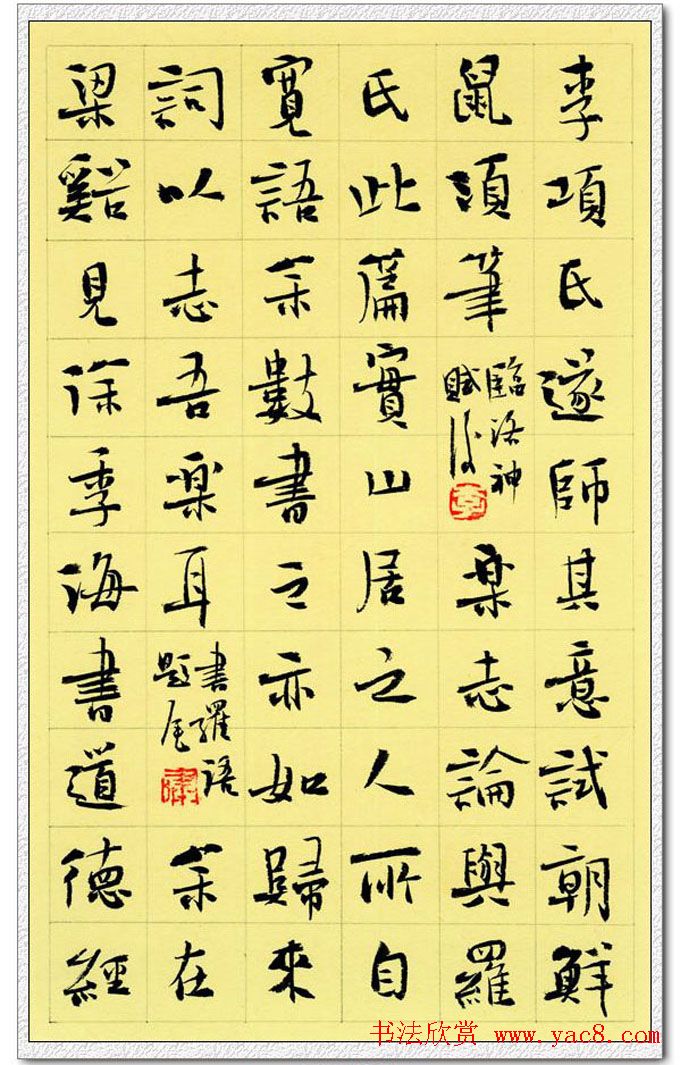 李項氏遂師其意試朝鮮
鼠須筆
臨洛神
賦後
樂志論與羅
氏此篇實山居之人所自
寬語余數書之亦如歸來
詞以志吾樂耳
書羅語
題尾
余在
梁谿見徐季海書道德經
书法欣赏 www.yac8.com